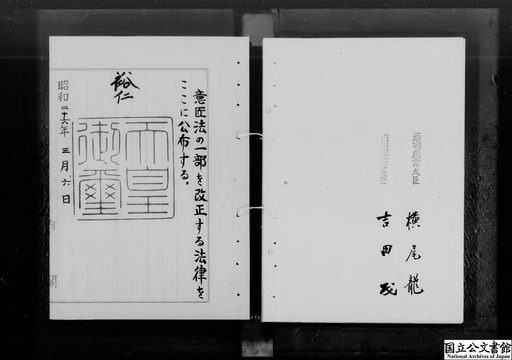 通商産業大臣
横尾龍
内閣総理大臣
吉田茂
意匠法の一部を改正する法律を
ここに公布する。
裕仁
天皇
御璽
昭和二十六年三月六日
内閣
国立公文書館
National Archives of Japan